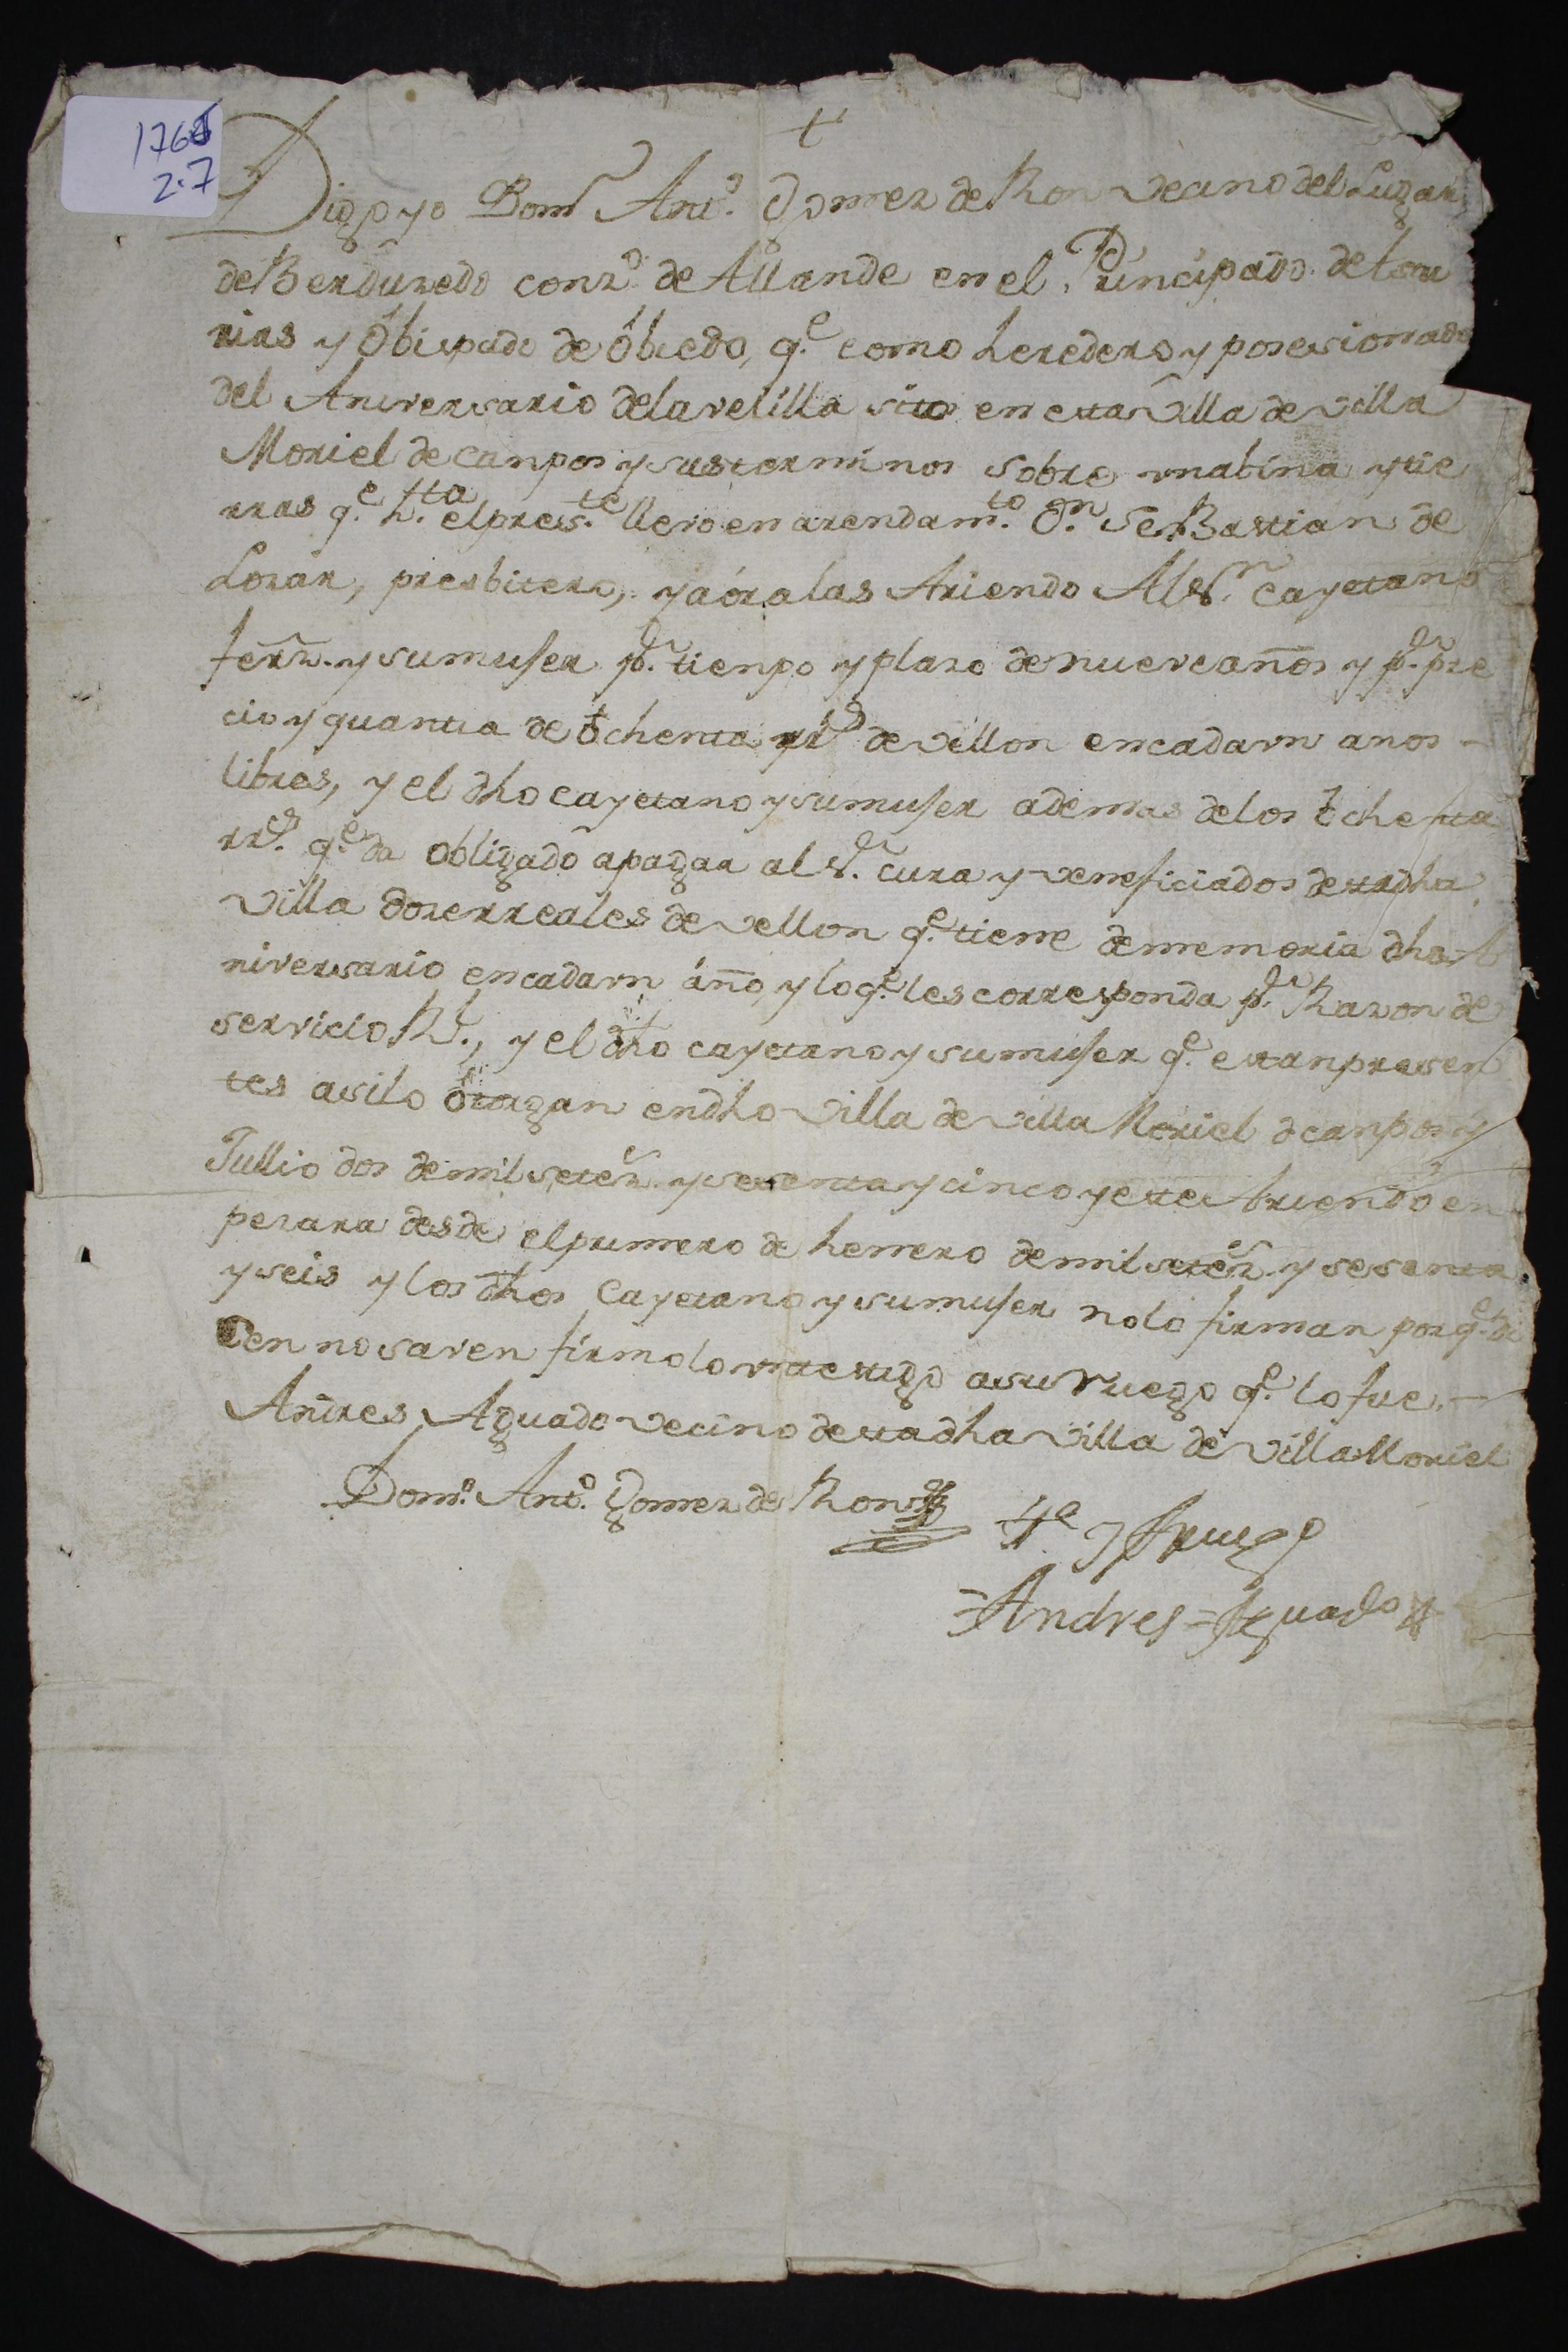 1765
2·7
+
Digo yo Domº Antº. Gomez de Ron vecino del Lugar
de Berduzedo conzº. de Allande en el Principado de Astu
rias y Obispado de Obiedo, q.e como heredero y posesionado
del Aniversario de la velilla sito en esta Villa de Villa
Moriel de canpos y sus terminos sobre una bina y tie
rras q.e h.tta el pres.te llevo en arendam.to D.n SeBastian de
Lozar, presbitero, y aora las Ariendo Al S.r Cayetano
fern̄z. y su muJer p.r tienpo y plazo de nueve años y p.r pre
cio y quantia de ochenta rr.s de vellon en cada vn anos -
libres, y el dho cayetano y su muJer ademas de los ochenta
rr.s q.e da obligado a pagar al S.r cura y veneficiados de esta dha
villa doze rreales de vellon q.e tiene de memoria dho A
niversario en cada vn año, y lo q.e les corresponda p.r Razon de
servicio R.l, y el dho cayetano y su muJer q.e estan presen
tes asi lo otorgan en dho villa de Villa Moriel de canpos y
Jullio dos de mil setez.s y sesenta y cinco y este Ariendo en
pezara desde el primero de henero de mil setez.s y sesenta
y seis y los dhos Cayetano y su muJer no lo firman por q.e di
cen no saven firmolo un testigo a su Ruego q.e lo fue -
Andres Aguado vecino de esta dha villa de Villa Moriel
Dom.º Ant.º Gomez de Ron
t.º y A Ruego
Andres Aguado